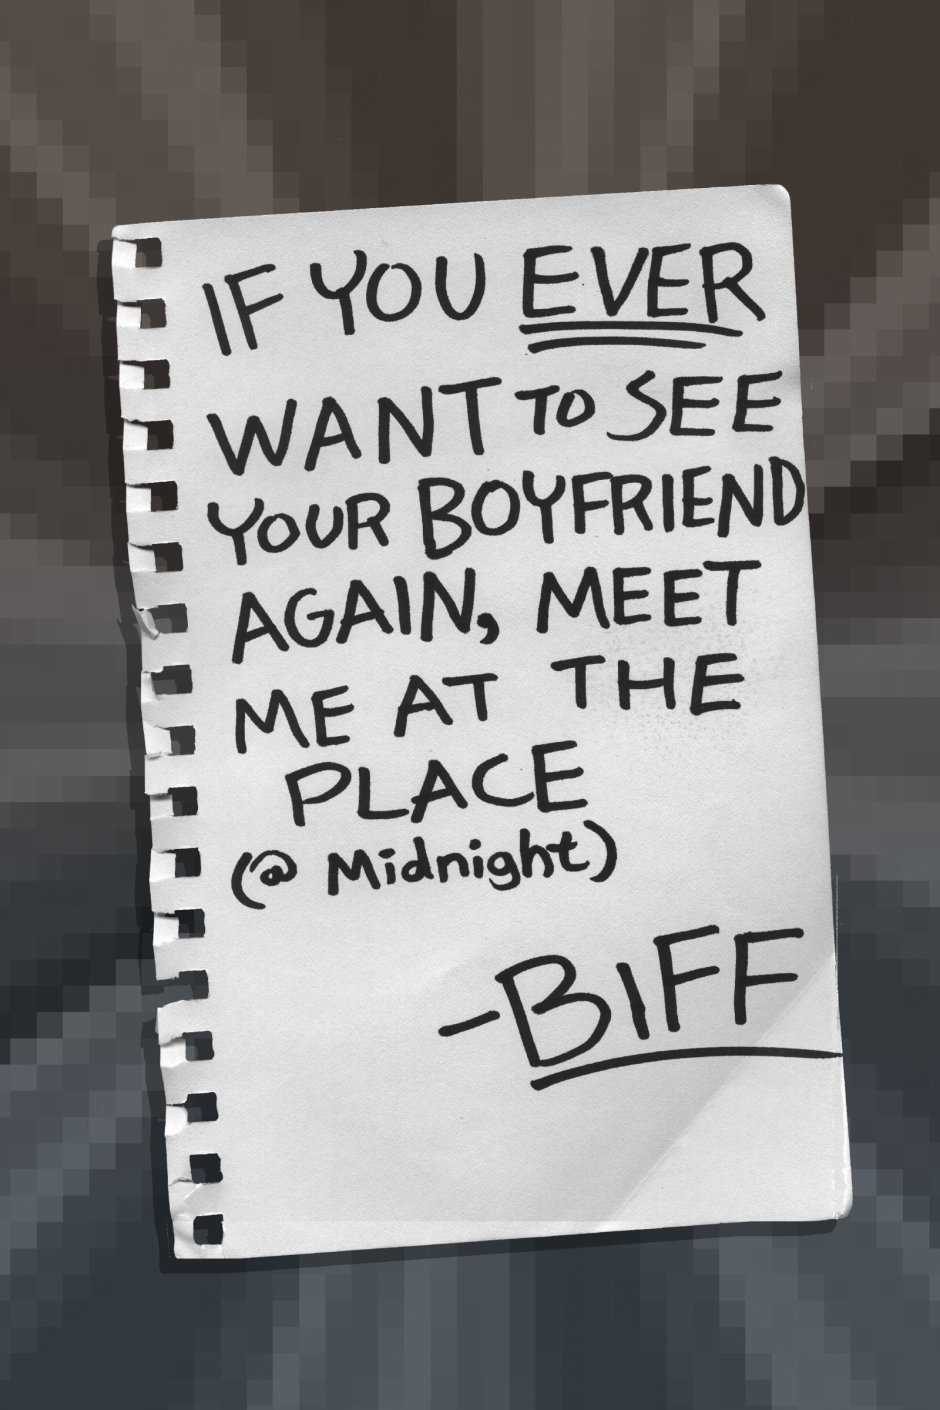 IF YOU EVER
WANT TO SEE
YOUR BOYFRIEND
AGAIN, MEET
ME AT THE
PLACE
(@ Midnight)
-BIFF